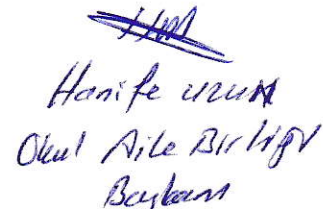 Hanife uzun
Okul Aile Birliği
Başkanı